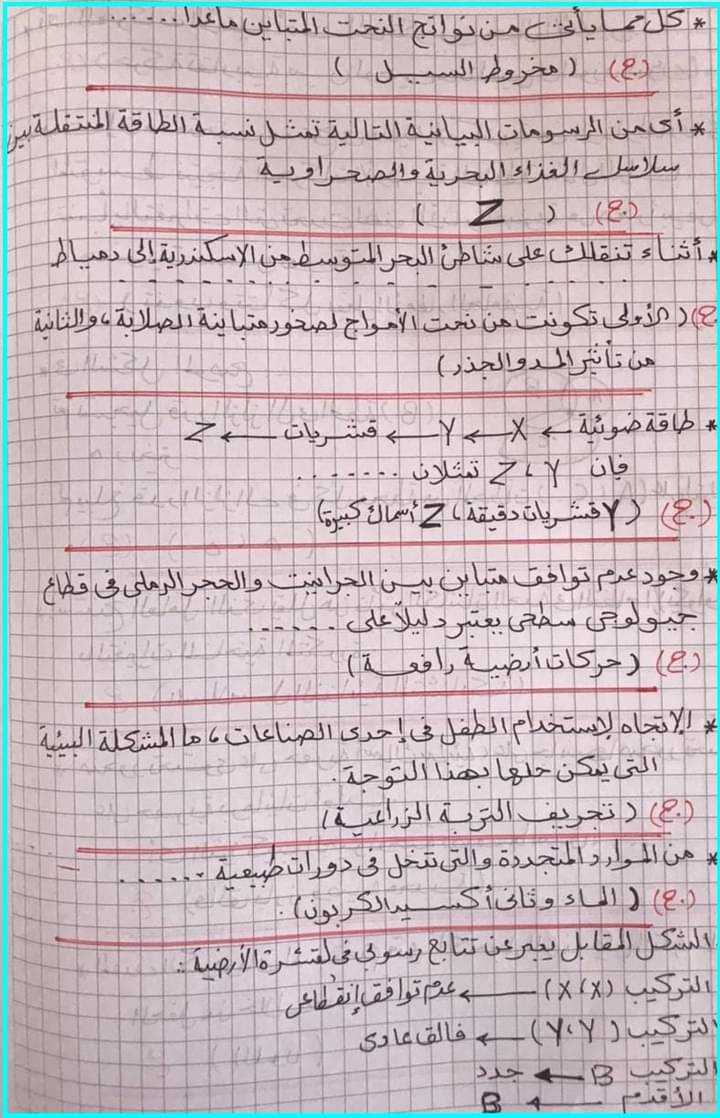 * كل مما يأتى من نواتج النحت المتباين ماعدا......
(ج) (مخروط السيل)
* أى من الرسومات البيانية التالية تمثل نسبة الطاقة المنتقلة بين
سلاسل الغذاء البحرية والصحراوية
(ج) ( Z )
* أثناء تنقلك على شاطئ البحر المتوسط من الاسكندرية إلى دمياط
..........
(ج) (الأولى تكونت من نحت الأمواج لصخور متباينة الصلابة، والثانية
من تأثير المد والجذر)
* طاقة ضوئية ← X ← Y ← قشريات ← Z
فإن Y، Z تمثلان .......
(ج) (Y قشريات دقيقة، Z أسماك كبيرة)
* وجود عدم توافق متباين بين الجرانيت والحجر الرملى فى قطاع
جيولوجى سطحى يعتبر دليلاً على ......
(ج) (حركات أرضية رافعة)
* الإتجاه لإستخدام الطفل فى إحدى الصناعات، ما المشكلة البيئية
التى يمكن حلها بهذا التوجة.
(ج) (تجريف التربة الزراعية)
* من الموارد المتجددة والتى تتخل فى دورات طبيعية ......
(ج) (الماء وثانى أكسيد الكربون).
الشكل المقابل يعبر عن تتابع رسوبى فى القشرة الأرضية:
التركيب (X،X) ← عدم توافق إنقطاعى
التركيب (Y،Y) ← فالق عادى
التركيب B ← جدد
الأقدم ← B